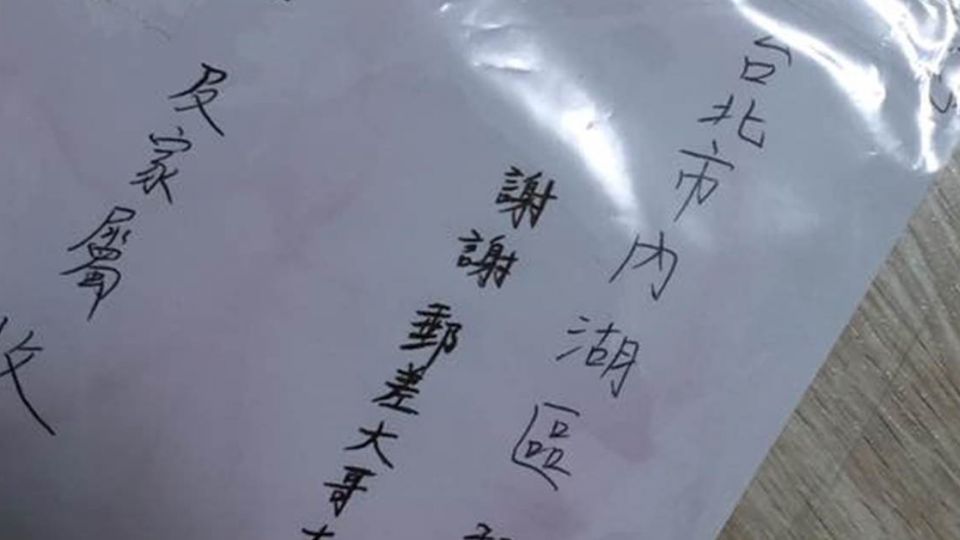 台北市內湖區
謝謝郵差大哥
及家屬收